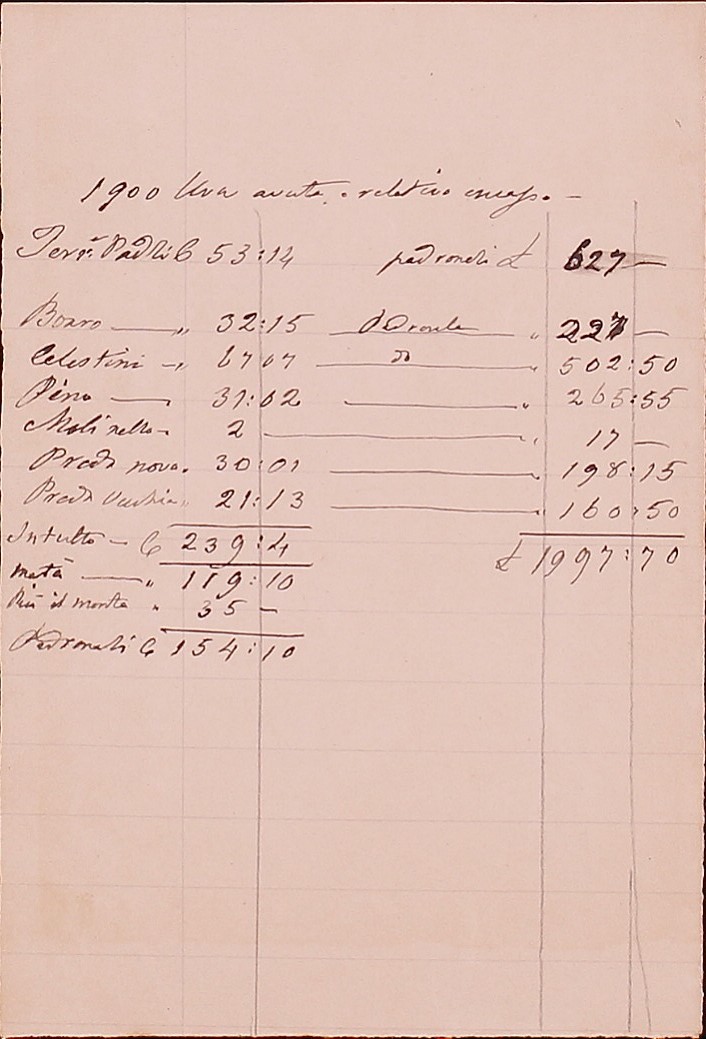 1900 Uva avuta e relativo incasso. —
Terrᵉ. Padli C 53:14 padronali £ 627 —
Boaro — „ 32:15 Padronale „ 227 —
Celestini — „ 67 07 do „ 502:50
Pino — 31:02 — „ 265:55
Molinello — 2 — „ 17 —
Preda nova „ 30:01 — „ 198:15
Preda Vecchia „ 21:13 — „ 160:50
In tutto — C 239:4 £ 1997:70
metà — „ 119:10
Più il monte „ 35 —
Padronali C 154:10